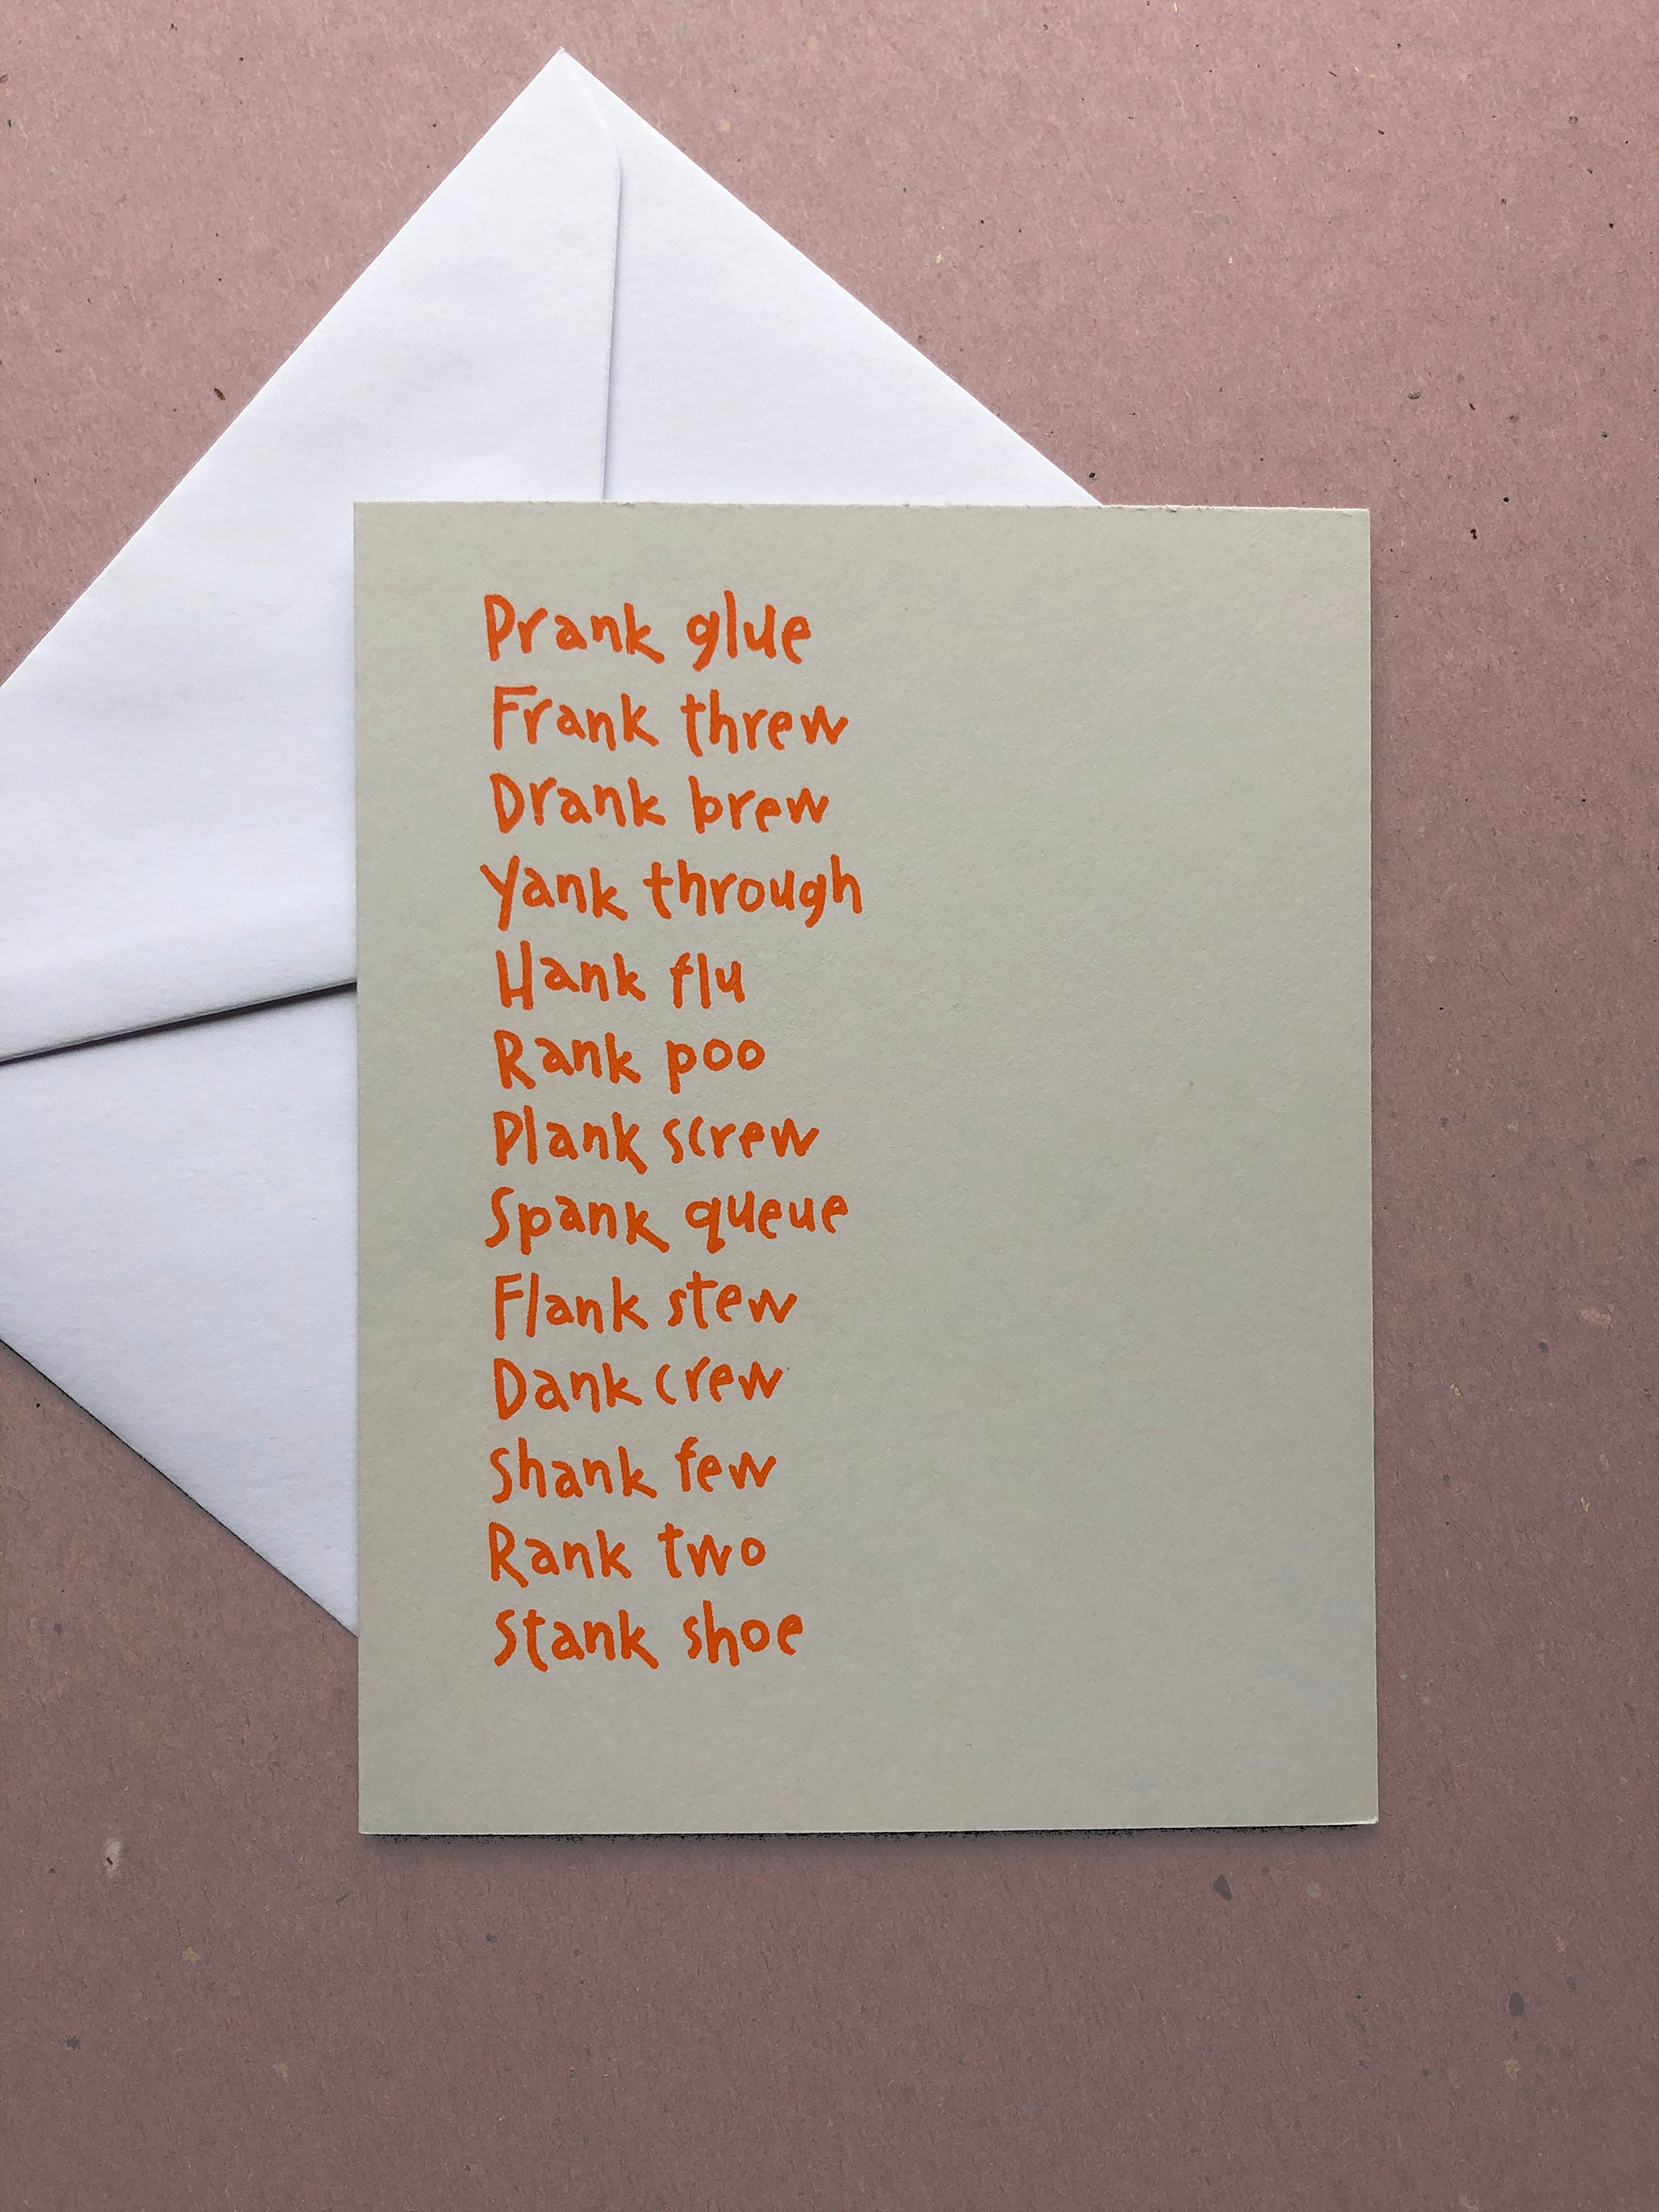 Prank glue
Frank threw
Drank brew
Yank through
Hank flu
Rank poo
Plank screw
Spank queue
Flank stew
Dank crew
Shank few
Rank two
Stank shoe